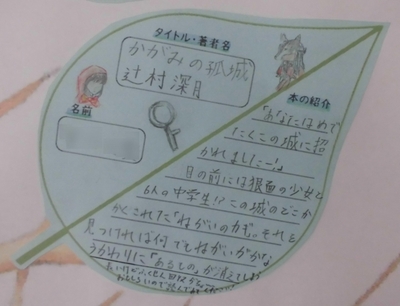 タイトル・著者名
かがみの孤城
辻村深月
名前
本の紹介
「あなたはめで
たくこの城に招
かれましたー!」
目の前には狼面の少女と
6人の中学生!?この城のどこか
かくされた「ねがいのカギ」。それを
見つければ何でもねがいがかな
うかわりに「あるもの」が消えてしまう